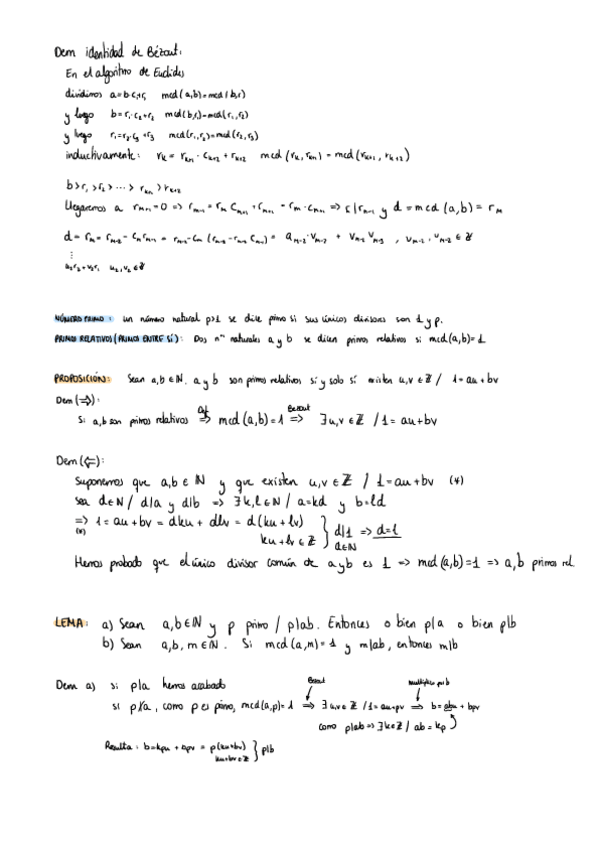 Dem identidad de Bézout:
En el algoritmo de Euclides
dividimos a=b·c₁+r₁ mcd(a,b)=mcd(b,r)
y luego b=r₁·c₂+r₂ mcd(b,r₁)=mcd(r₁,r₂)
y luego r₁=r₂·c₃+r₃ mcd(r₁,r₂)=mcd(r₂,r₃)
inductivamente: rₖ = rₖ₊₁ · cₖ₊₂ + rₖ₊₂ mcd(rₖ,rₖ₊₁) = mcd(rₖ₊₁,rₖ₊₂)
b>r₁>r₂>···>rₖ₊₁>rₖ₊₂
Llegaremos a y d = mcd(a,b) = rₘ
d = rₘ =
⋮
u₂r₂+v₂r₁ u₂,v₂ ∈ ℤ
NÚMERO PRIMO: un número natural p>1 se dice primo si sus únicos divisores son 1 y p.
PRIMOS RELATIVOS (PRIMOS ENTRE SÍ): Dos nᵒˢ naturales a y b se dicen primos relativos si mcd(a,b)=1
PROPOSICIÓN: Sean a,b∈ℕ. a y b son primos relativos sí y solo sí existen u,v∈ℤ / 1=au+bv
Dem(⇒):
Si a,b son primos relativos ⇒ mcd(a,b)=1 Bezout ⇒ ∃u,v∈ℤ / 1=au+bv
Dem(⇐):
Suponemos que a,b∈ℕ y que existen u,v∈ℤ / 1=au+bv (*)
sea d∈ℕ / d|a y d|b ⇒ ∃k,l∈ℕ / a=kd y b=ld
⇒ 1=au+bv = dku + dlv = d(ku+lv)
(*) ku+lv∈ℤ } d|1 d∈ℕ ⇒ d=1
Hemos probado que el único divisor común de a y b es 1 ⇒ mcd(a,b)=1 ⇒ a,b primos rel.
LEMA: a) Sean a,b∈ℕ y p primo / p|ab. Entonces o bien p|a o bien p|b
b) Sean a,b,m∈ℕ. Si mcd(a,m)=1 y m|ab, entonces m|b
Bezout multiplico por b
Dem a) si p|a hemos acabado
si p∤a, como p es primo, mcd(a,p)=1 ⇒ ∃u,v∈ℤ / 1=au+pv ⇒ b=abu+bpv
como p|ab ⇒ ∃k∈ℤ / ab=kp
Resulta: b=kpu+bpv = p(ku+bv)
ku+bv∈ℤ } p|b